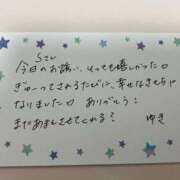 Sさん
今日のお誘い、とっても嬉しかった♡
ぎゅーってされるたびに、幸せなきもちに
なりました♡ ありがとう!
またあまえさせてくれる?
ゆき